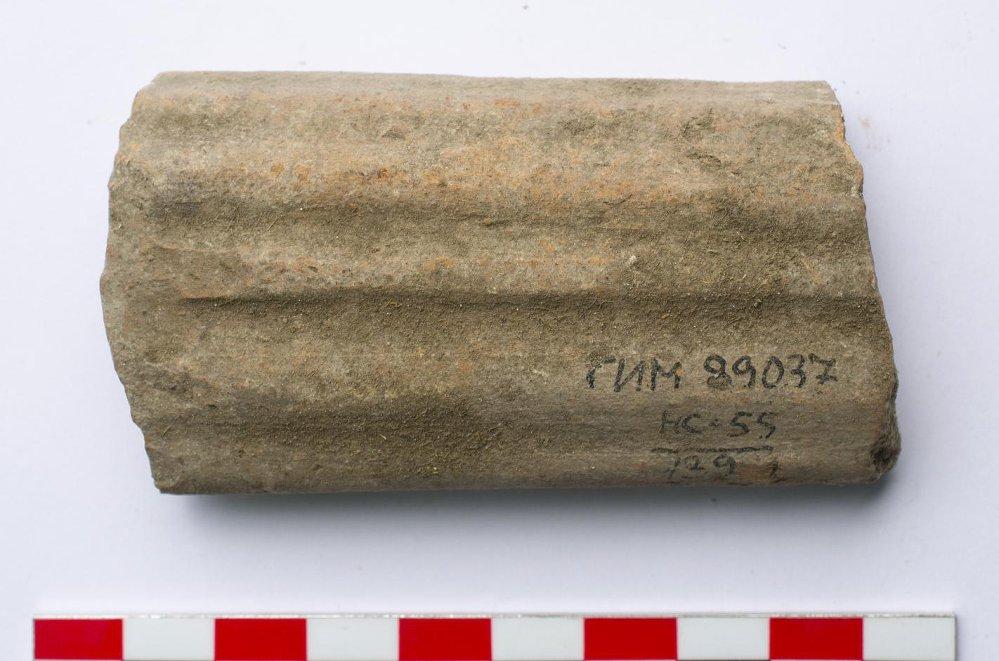 ГИМ 89037
НС·55
729